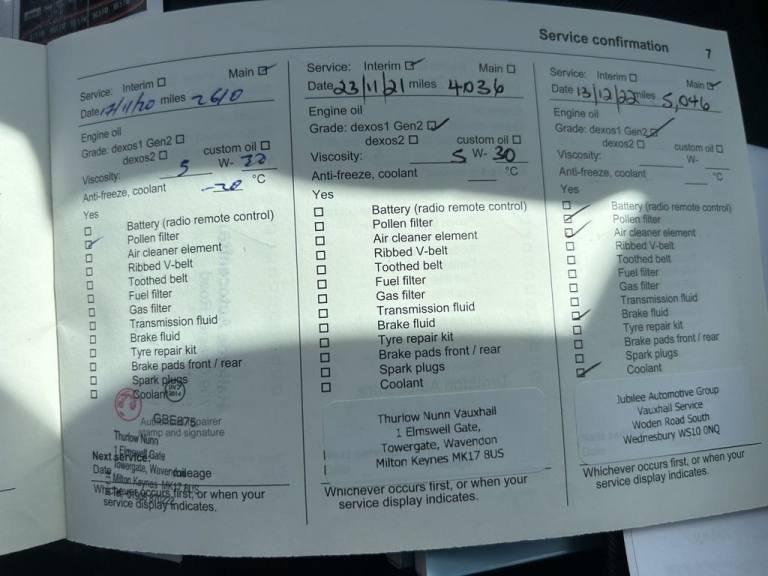 Service confirmation 7
Service: Interim Main
Date 17/11/20 miles 2610
Engine oil
Grade: dexos1 Gen2
dexos2 custom oil
Viscosity: 5 W- 30
Anti-freeze, coolant -30 °C
Yes
Battery (radio remote control)
Pollen filter
Air cleaner element
Ribbed V-belt
Toothed belt
Fuel filter
Gas filter
Transmission fluid
Brake fluid
Tyre repair kit
Brake pads front / rear
Spark plugs
Coolant
GBE875
stamp and signature
Thurlow Nunn
1 Elmswell Gate
Towergate, Wavendon
Milton Keynes MK17 8US
Next service:
Date mileage
Whichever occurs first, or when your
service display indicates.
Service: Interim Main
Date 23/11/21 miles 4036
Engine oil
Grade: dexos1 Gen2
dexos2 custom oil
Viscosity: 5 W- 30
Anti-freeze, coolant °C
Yes
Battery (radio remote control)
Pollen filter
Air cleaner element
Ribbed V-belt
Toothed belt
Fuel filter
Gas filter
Transmission fluid
Brake fluid
Tyre repair kit
Brake pads front / rear
Spark plugs
Coolant
Thurlow Nunn Vauxhall
1 Elmswell Gate,
Towergate, Wavendon
Milton Keynes MK17 8US
Whichever occurs first, or when your
service display indicates.
Service: Interim Main
Date 13/12/22 miles 5,046
Engine oil
Grade: dexos1 Gen2
dexos2 custom oil
Viscosity: W-
Anti-freeze, coolant °C
Yes
Battery (radio remote control)
Pollen filter
Air cleaner element
Ribbed V-belt
Toothed belt
Fuel filter
Gas filter
Transmission fluid
Brake fluid
Tyre repair kit
Brake pads front / rear
Spark plugs
Coolant
Jubilee Automotive Group
Vauxhall Service
Woden Road South
Wednesbury WS10 0NQ
Whichever occurs first, or when your
service display indicates.